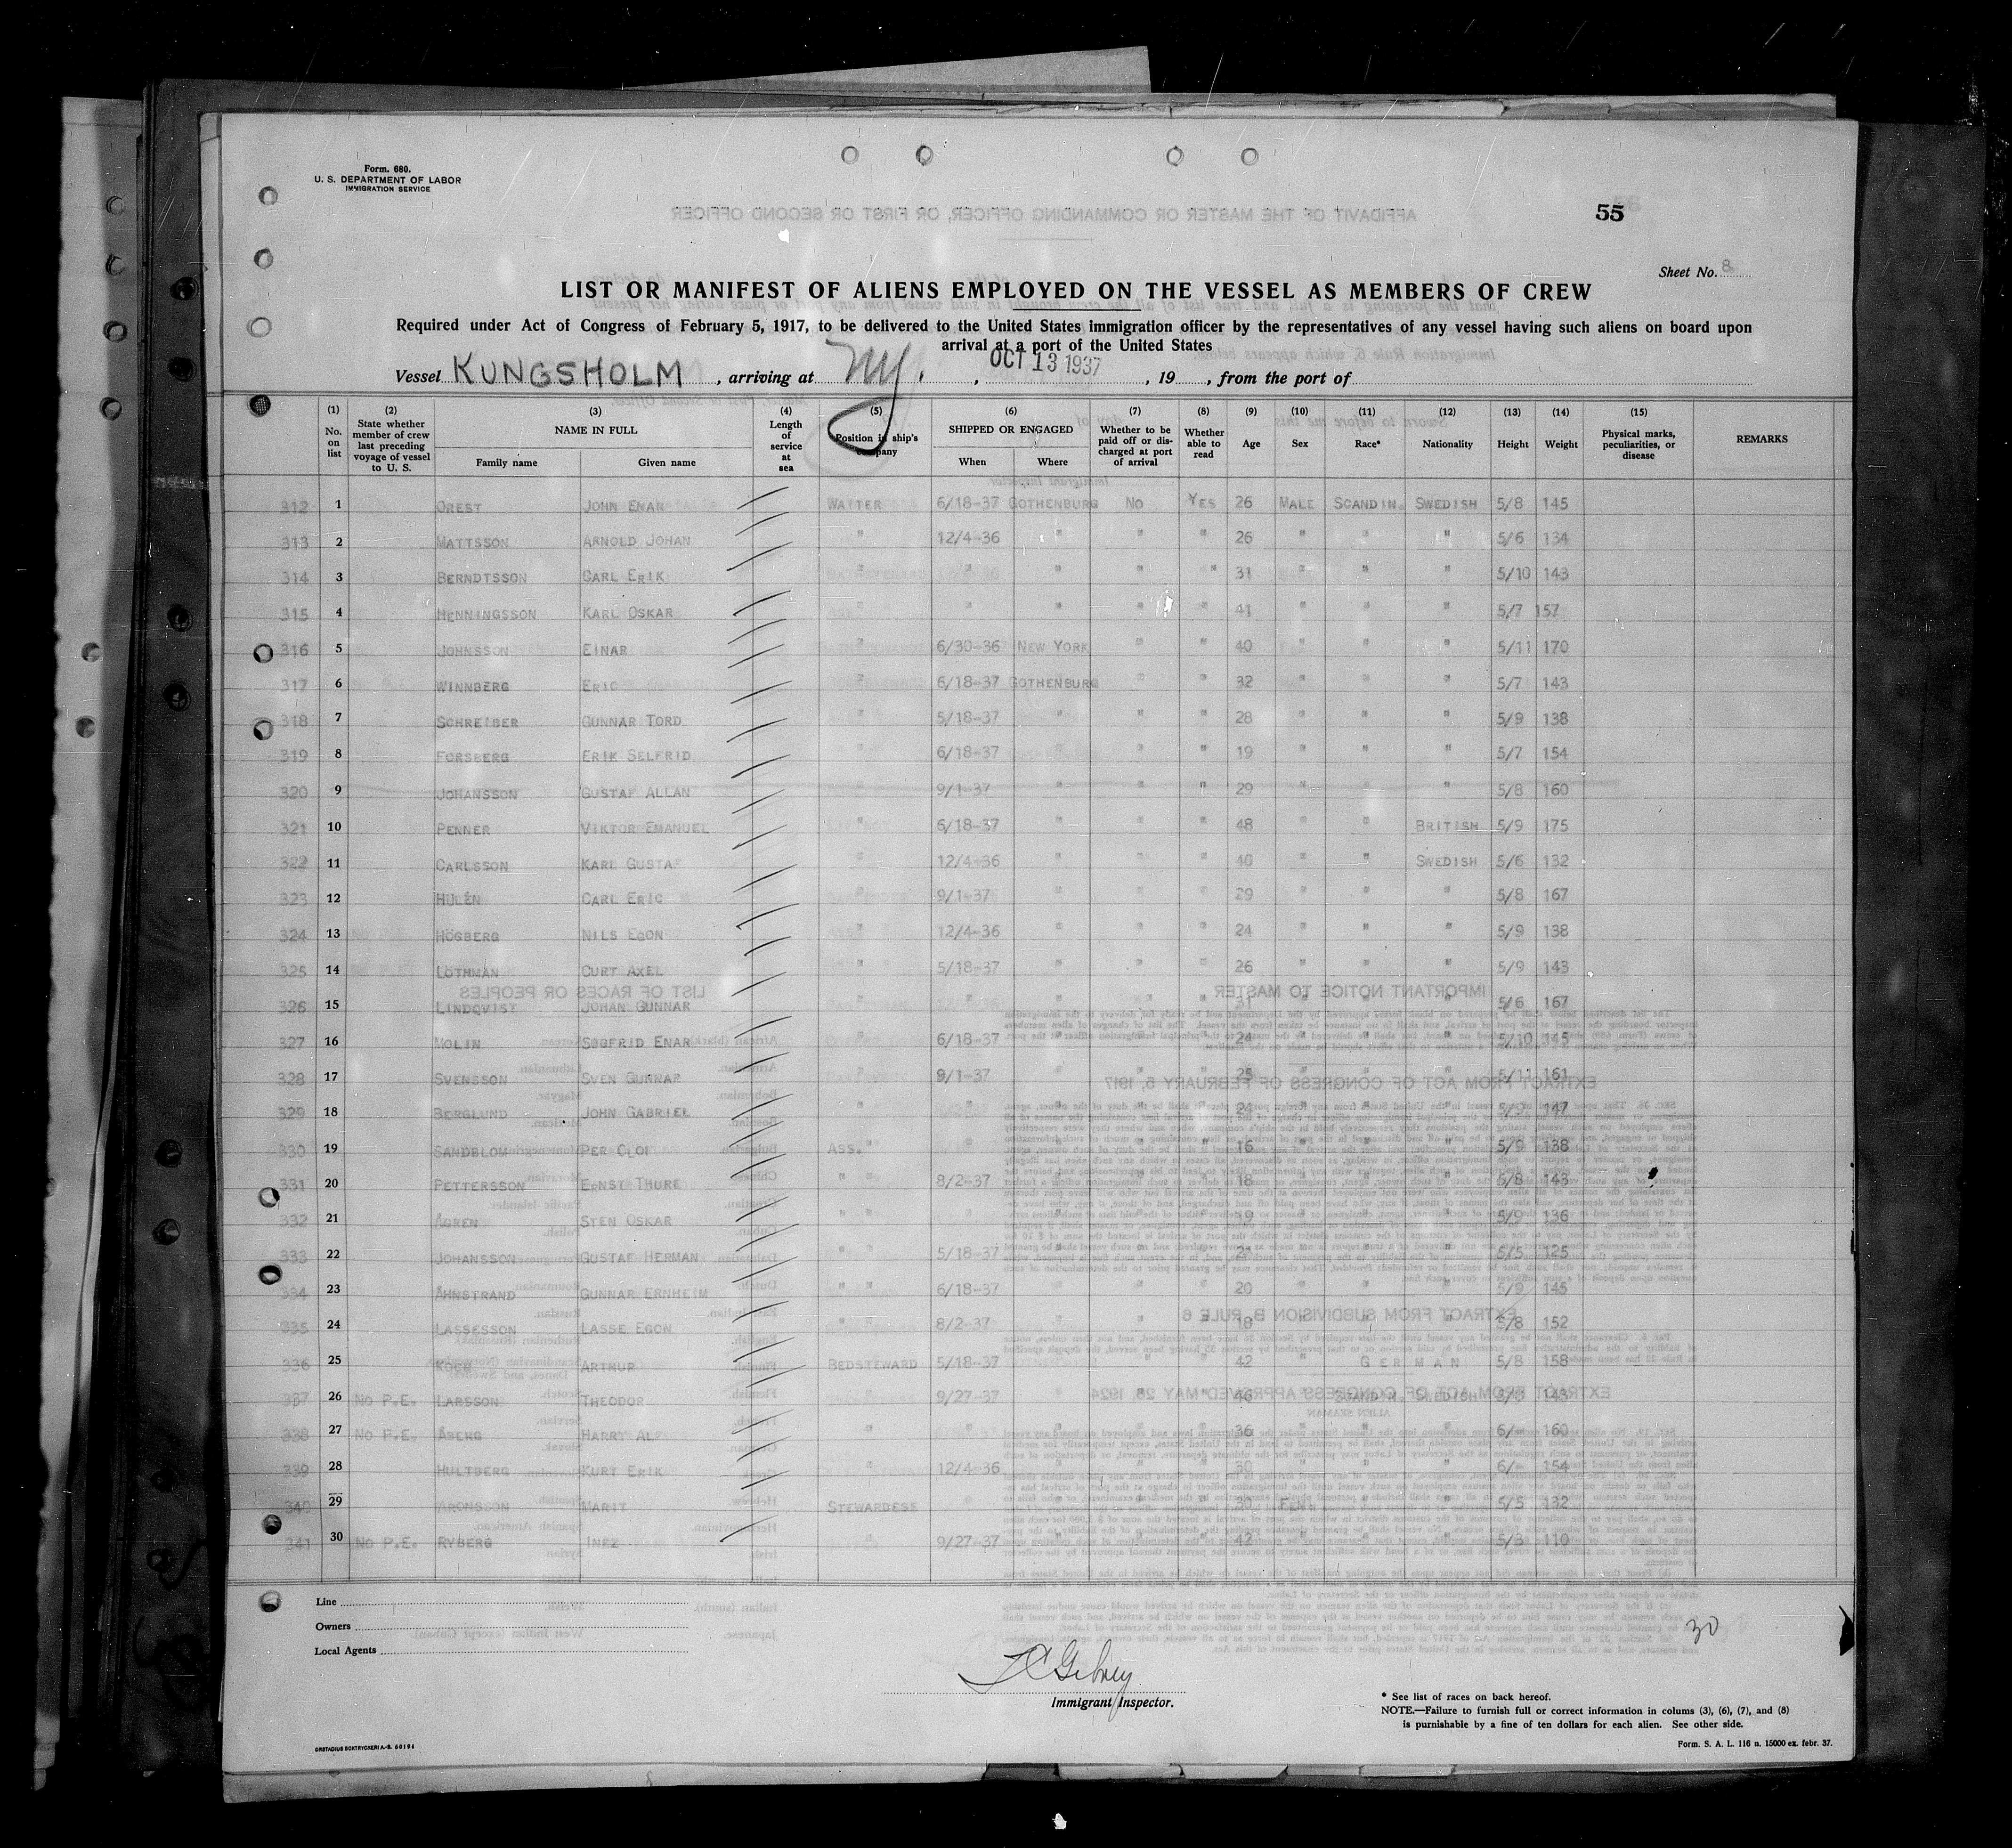 Form. 680.
U. S. DEPARTMENT OF LABOR
IMMIGRATION SERVICE
55
Sheet No. 8
LIST OR MANIFEST OF ALIENS EMPLOYED ON THE VESSEL AS MEMBERS OF CREW
Required under Act of Congress of February 5, 1917, to be delivered to the United States immigration officer by the representatives of any vessel having such aliens on board upon
arrival at a port of the United States
Vessel KUNGSHOLM, arriving at NY., OCT 13 1937, 19, from the port of
(1) No. on list (2) State whether member of crew last preceding voyage of vessel to U. S. (3) NAME IN FULL Family name Given name (4) Length of service at sea (5) Position in ship's company (6) SHIPPED OR ENGAGED When Where (7) Whether to be paid off or discharged at port of arrival (8) Whether able to read (9) Age (10) Sex (11) Race* (12) Nationality (13) Height (14) Weight (15) Physical marks, peculiarities, or disease REMARKS
312 1 OREST JOHN ENAR WAITER 6/18-37 GOTHENBURG No YES 26 MALE SCANDIN. SWEDISH 5/8 145
313 2 MATTSSON ARNOLD JOHAN " 12/4-36 " " " 26 " " " 5/6 134
314 3 BERNDTSSON CARL ERIK " " " " " 31 " " " 5/10 143
315 4 HENNINGSSON KARL OSKAR " " " " " 41 " " " 5/7 157
316 5 JOHNSSON EINAR " 6/30-36 NEW YORK " " 40 " " " 5/11 170
317 6 WINNBERG ERIC " 6/18-37 GOTHENBURG " " 32 " " " 5/7 143
318 7 SCHREIBER GUNNAR TORD " 5/18-37 " " " 28 " " " 5/9 138
319 8 FORSBERG ERIK SELFRID " 6/18-37 " " " 19 " " " 5/7 154
320 9 JOHANSSON GUSTAF ALLAN " 9/1-37 " " " 29 " " " 5/8 160
321 10 PENNER VIKTOR EMANUEL " 6/18-37 " " " 48 " " BRITISH 5/9 175
322 11 CARLSSON KARL GUSTAF " 12/4-36 " " " 40 " " SWEDISH 5/6 132
323 12 HULÉN CARL ERIC " 9/1-37 " " " 29 " " " 5/8 167
324 13 HÖGBERG NILS EGON " 12/4-36 " " " 24 " " " 5/9 138
325 14 LÖTHMAN CURT AXEL " 5/18-37 " " " 26 " " " 5/9 143
326 15 LINDQVIST JOHAN GUNNAR " " " " " 31 " " " 5/6 167
327 16 MOLIN SIGFRID ENAR " 6/18-37 " " " 24 " " " 5/10 145
328 17 SVENSSON SVEN GUNNAR " 9/1-37 " " " 25 " " " 5/11 161
329 18 BERGLUND JOHN GABRIEL " " " " " 24 " " " 5/9 147
330 19 SANDBLOM PER OLOF ASS. " " " " " 16 " " " 5/9 138
331 20 PETTERSSON ERNST THURE " " 8/2-37 " " " 18 " " " 5/8 143
332 21 ÅGREN STEN OSKAR " " " " " " 19 " " " 5/9 136
333 22 JOHANSSON GUSTAF HERMAN " " 5/18-37 " " " " " " 5/5 125
334 23 ÅHNSTRAND GUNNAR ERNHEIM " " 6/18-37 " " " 20 " " " 5/9 145
335 24 LASSESSON LASSE EGON " " 8/2-37 " " " " " " 5/8 152
336 25 ARTHUR BEDSTEWARD 5/18-37 " " " 42 " GERMAN 5/8 158
337 26 No P.E. LARSSON THEODOR " 9/27-37 " " " 46 " SCANDIN. SWEDISH 143
338 27 No P.E. ÅBERG HARRY ALF " " " " " 36 " " " 6/- 160
339 28 HULTBERG KURT ERIK " 12/4-36 " " " 30 " " " 6/- 154
340 29 ARONSSON MARIT STEWARDESS " " " " 30 FEM. " " 5/5 132
341 30 No P.E. RYBERG INEZ " 9/27-37 " " " 42 " " " 5/3 110
Line
Owners
Local Agents
30
Immigrant Inspector.
* See list of races on back hereof.
NOTE.—Failure to furnish full or correct information in colums (3), (6), (7), and (8)
is punishable by a fine of ten dollars for each alien. See other side.
Form. S. A. L. 116 n. 15000 ex. febr. 37.